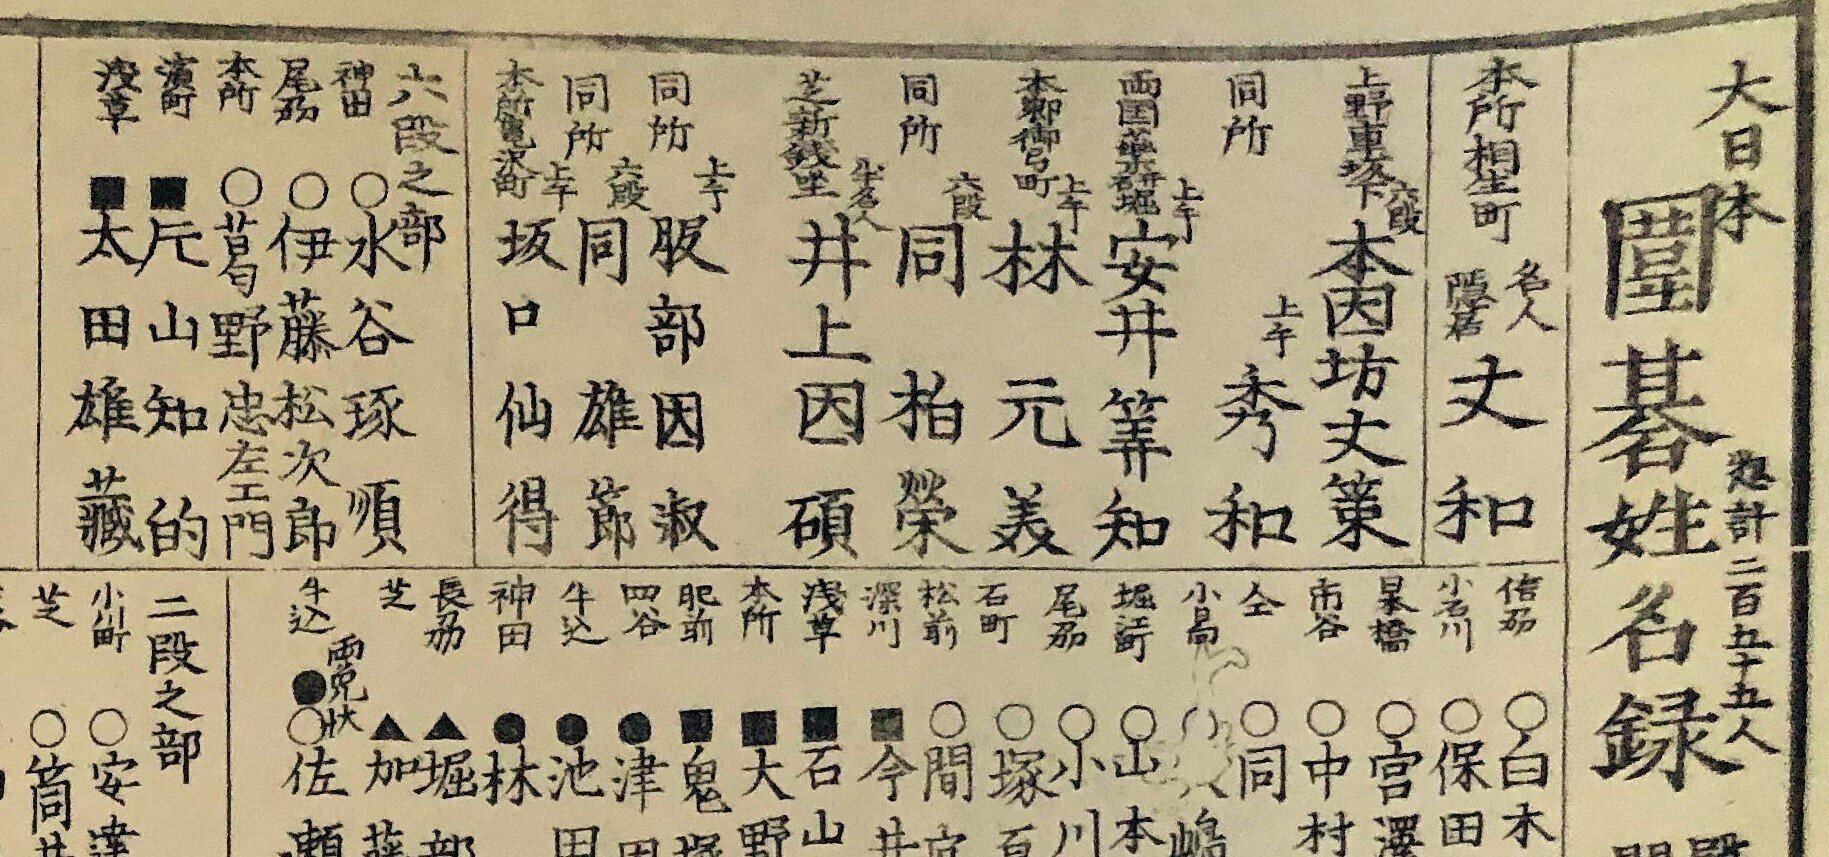 大日本
圍碁姓名録
惣計二百五十五人
本所相生町
名人
隠居
丈和
上野車坂下
六段
本因坊丈策
同所
上手
秀和
両国薬研堀
上手
安井筭知
本郷御弓町
上手
林元美
同所
六段
同柏榮
芝新銭座
準名人
井上因碩
同所
上手
服部因淑
同所
六段
同雄節
本所亀沢町
上手
坂口仙得
六段之部
神田
○水谷琢順
尾刕
○伊藤松次郎
本所
○葛野忠左エ門
濱町
■片山知的
浅草
■太田雄藏
信刕
○白木
小石川
○保田
呉橋
○宮澤
市谷
○中村
仝
○同
小舟
嶋
堀江町
○山本
尾刕
○小川
石町
○塚百
松前
○間宮
深川
■今井
浅草
■石山
本所
■大野
肥前
■鬼塚
四谷
●津田
牛込
●池田
神田
●林
長刕
▲堀部
芝
▲加藤
牛込
両免状
●○佐瀬
二段之部
小川町
○安達
芝
○筒井